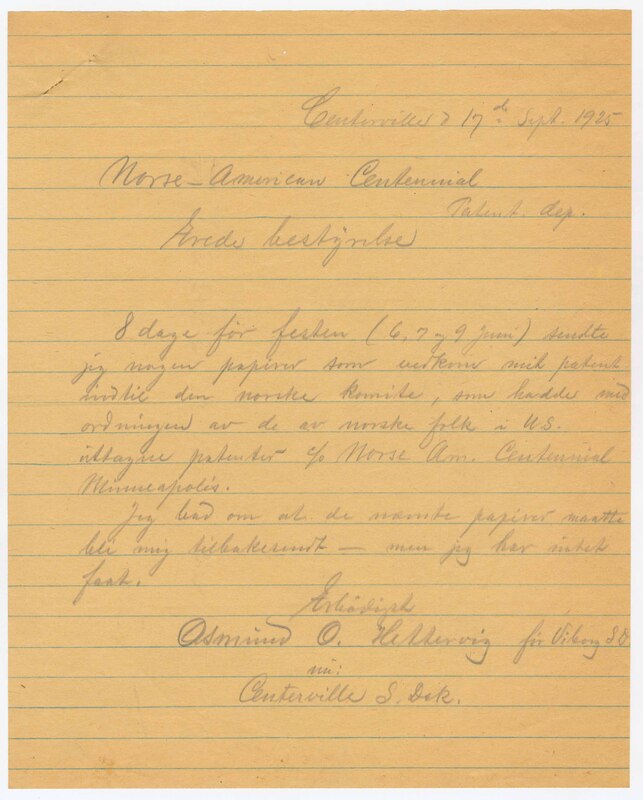 Centerville d 17de Sept. 1925
Norse-American Centennial
Patent. dep.
Ærede bestyrelse
8 dage för festen (6, 7 og 9 Juni) sendte
jeg nogen papirer som vedkom mit patent
indtil den norske komite, som hadde med
ordningen av de av norske folk i U.S.
uttagne patenter c/o Norse Am. Centennial
Minneapolis.
Jeg bad om at de nævnte papirer maatte
bli mig tilbakesendt — men jeg har intet
faat.
Ærbödigst
Osmund O. Hettervig för Viborg S D
nu:
Centerville S. Dak.